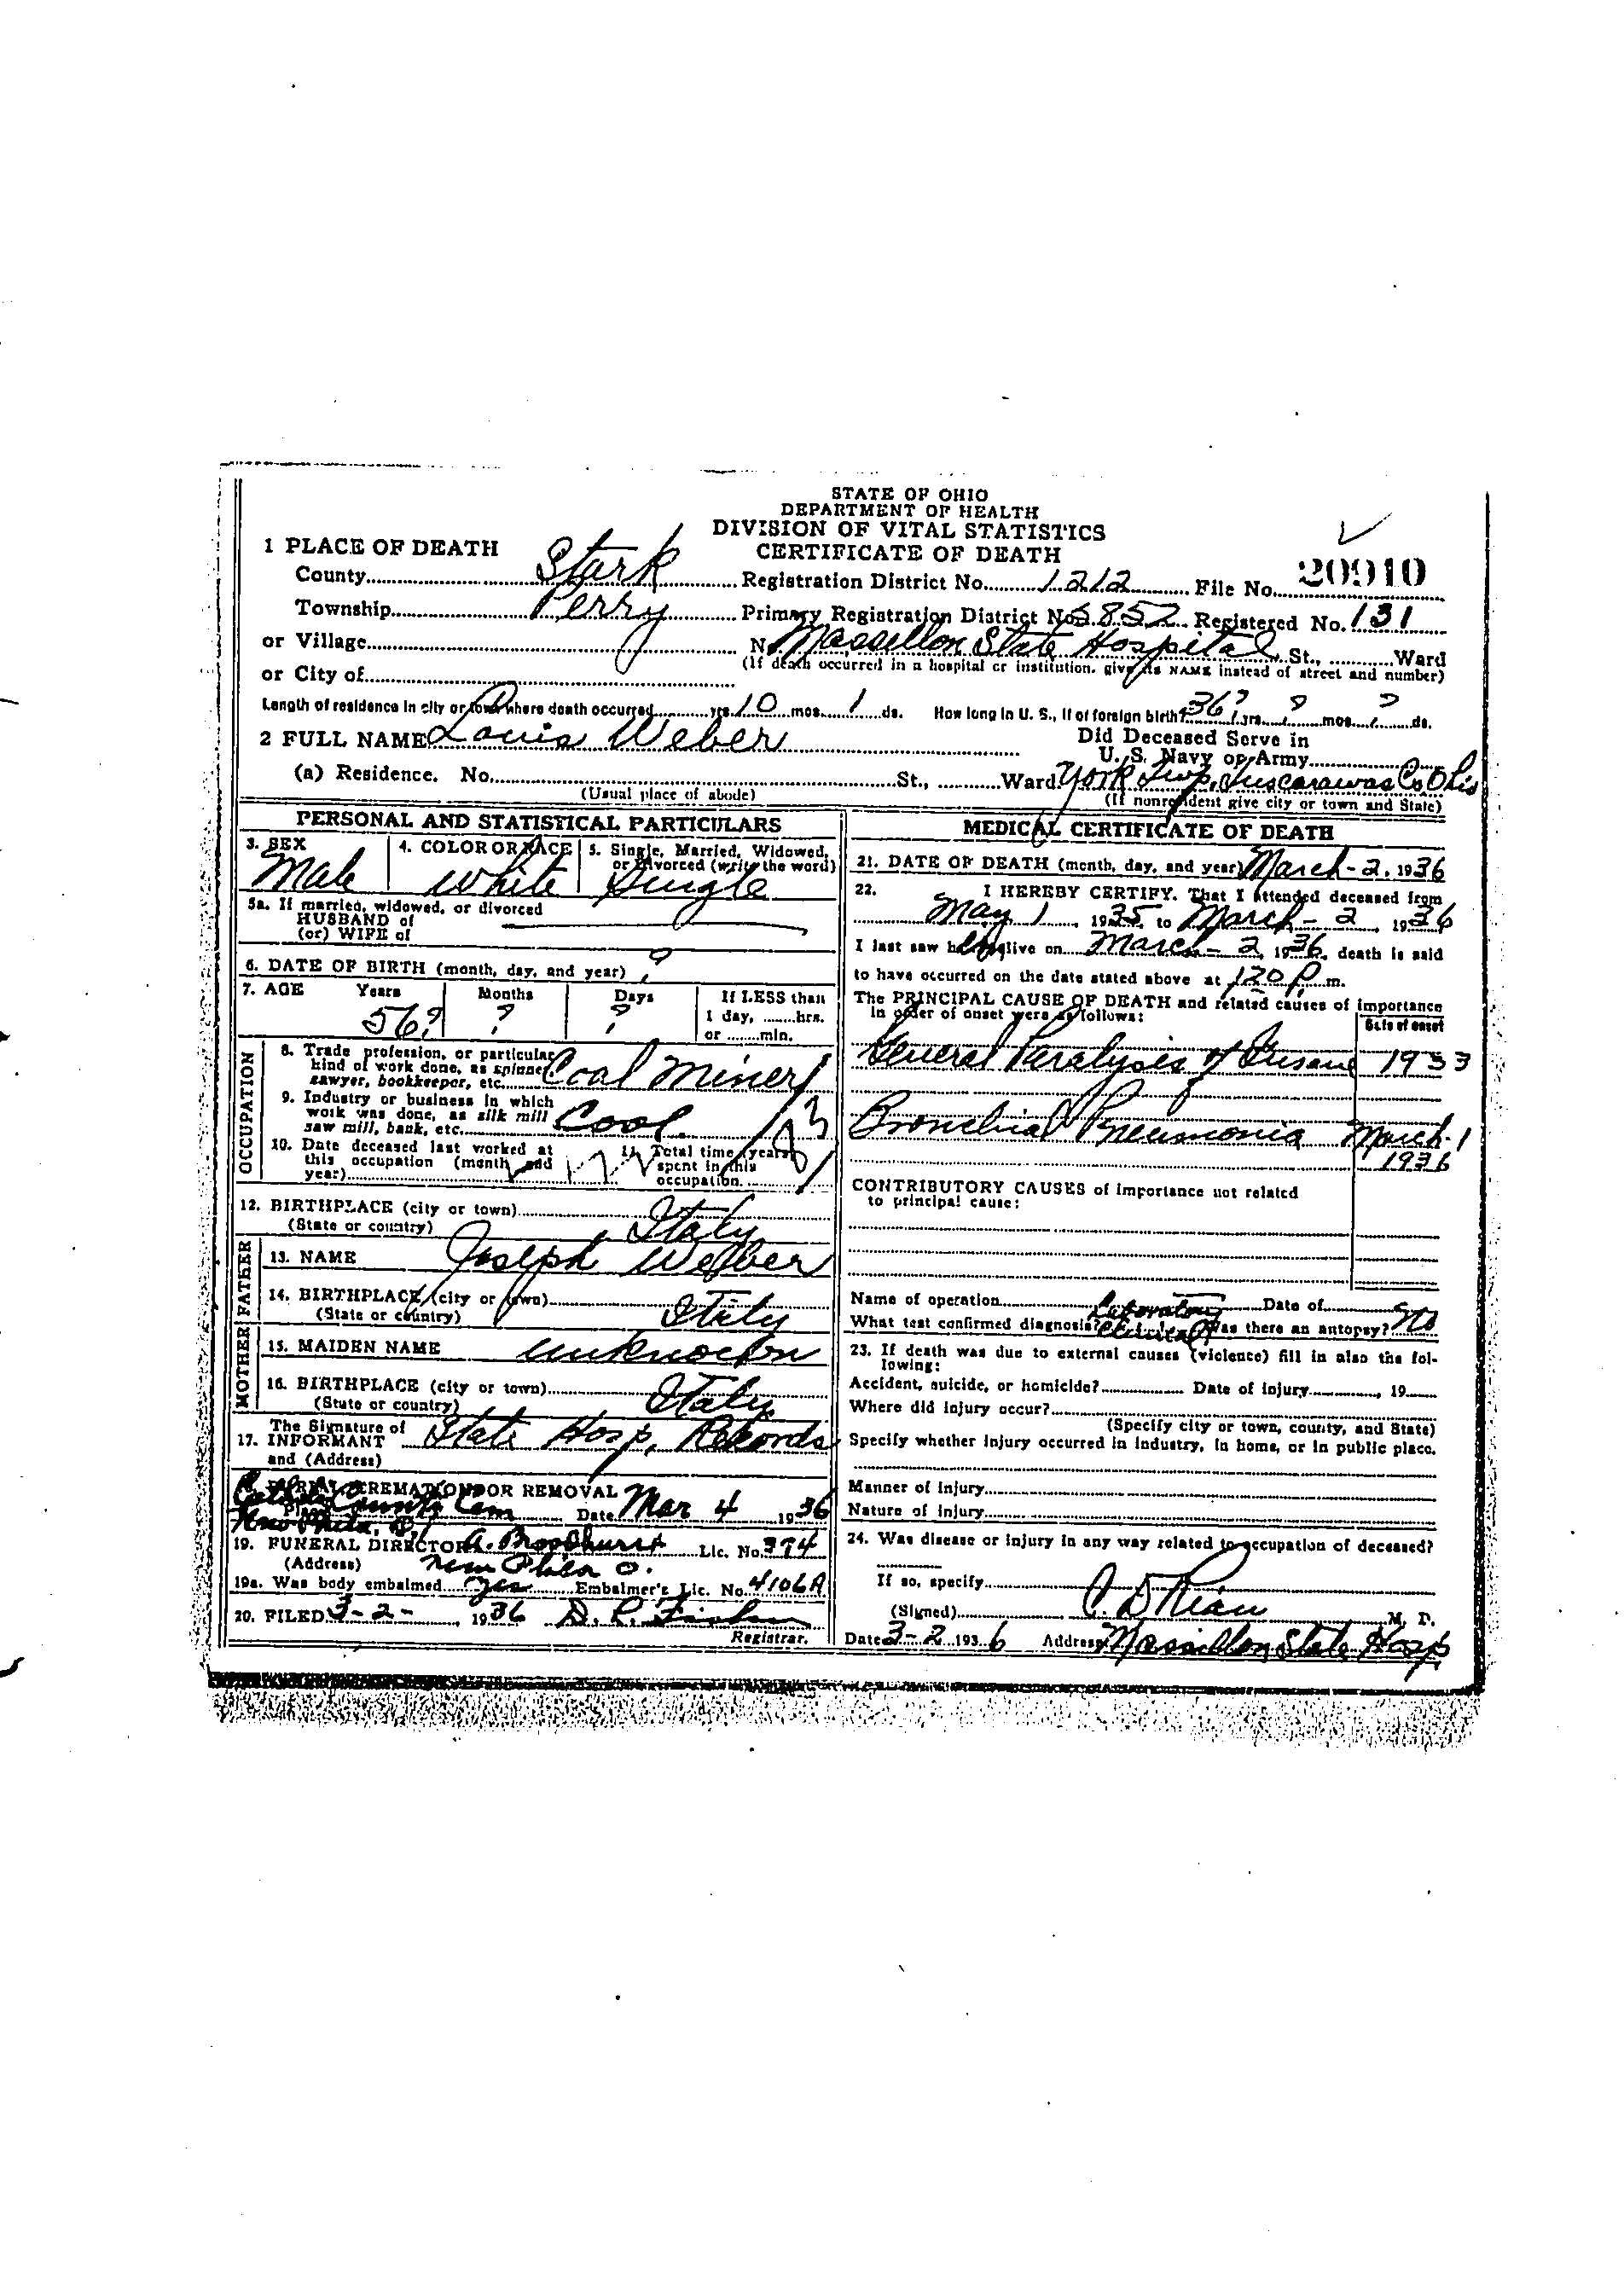 STATE OF OHIO
DEPARTMENT OF HEALTH
DIVISION OF VITAL STATISTICS
CERTIFICATE OF DEATH
1 PLACE OF DEATH
County Stark Registration District No. 1212 File No. 20910
Township Perry Primary Registration District No. 5852 Registered No. 131
or Village No. Massillon State Hospital St., Ward
(If death occurred in a hospital or institution, give its NAME instead of street and number)
or City of
Length of residence in city or town where death occurred yrs. 10 mos. 1 ds. How long in U. S., if of foreign birth? 36? yrs. ? mos. ? ds.
2 FULL NAME Louis Weber
Did Deceased Serve in
U. S. Navy or Army
(a) Residence. No. St., Ward. York Twp, Tuscarawas Co Ohio
(Usual place of abode) (If nonresident give city or town and State)
PERSONAL AND STATISTICAL PARTICULARS
3. SEX 4. COLOR OR RACE 5. Single, Married, Widowed,
or Divorced (write the word)
Male White Single
5a. If married, widowed, or divorced
HUSBAND of
(or) WIFE of
6. DATE OF BIRTH (month, day, and year) ?
7. AGE Years Months Days If LESS than
1 day, hrs.
or min.
56? ? ?
OCCUPATION
8. Trade, profession, or particular
kind of work done, as spinner,
sawyer, bookkeeper, etc. Coal Miner
9. Industry or business in which
work was done, as silk mill
saw mill, bank, etc. Coal
10. Date deceased last worked at
this occupation (month and
year)
11. Total time (years)
spent in this
occupation.
12. BIRTHPLACE (city or town)
(State or country) Italy
FATHER
13. NAME Joseph Weber
14. BIRTHPLACE (city or town)
(State or country) Italy
MOTHER
15. MAIDEN NAME Unknown
16. BIRTHPLACE (city or town)
(State or country) Italy
The Signature of
17. INFORMANT State Hosp. Records
and (Address)
BURIAL CREMATION OR REMOVAL
County Cem Date Mar 4 1936
New Phila, O.
19. FUNERAL DIRECTOR A. Broadhurst Lic. No. 394
(Address) New Phila O.
19a. Was body embalmed Yes Embalmer's Lic. No. 4106A
20. FILED 3-2- 1936
Registrar.
MEDICAL CERTIFICATE OF DEATH
21. DATE OF DEATH (month, day, and year) March - 2, 1936
22. I HEREBY CERTIFY, That I attended deceased from
May 1, 1935, to March - 2, 1936
I last saw him alive on March - 2, 1936, death is said
to have occurred on the date stated above at 120 P. m.
The PRINCIPAL CAUSE OF DEATH and related causes of importance
in order of onset were as follows:
Date of onset
General Paralysis of Insane 1933
Bronchial Pneumonia March 1
1936
CONTRIBUTORY CAUSES of importance not related
to principal cause:
Name of operation Date of
What test confirmed diagnosis? Laboratory Clinical Was there an autopsy? No
23. If death was due to external causes (violence) fill in also the fol-
lowing:
Accident, suicide, or homicide? Date of injury , 19
Where did injury occur?
(Specify city or town, county, and State)
Specify whether injury occurred in industry, in home, or in public place.
Manner of injury
Nature of injury
24. Was disease or injury in any way related to occupation of deceased?
If so, specify
(Signed) M. D.
Date 3-2 1936 Address Massillon State Hosp